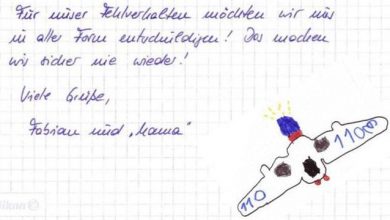 Für unser Fehlverhalten möchten wir uns
in aller Form entschuldigen! Das machen
wir sicher nie wieder!
Viele Grüße,
Fabian und „Mama“
110
110